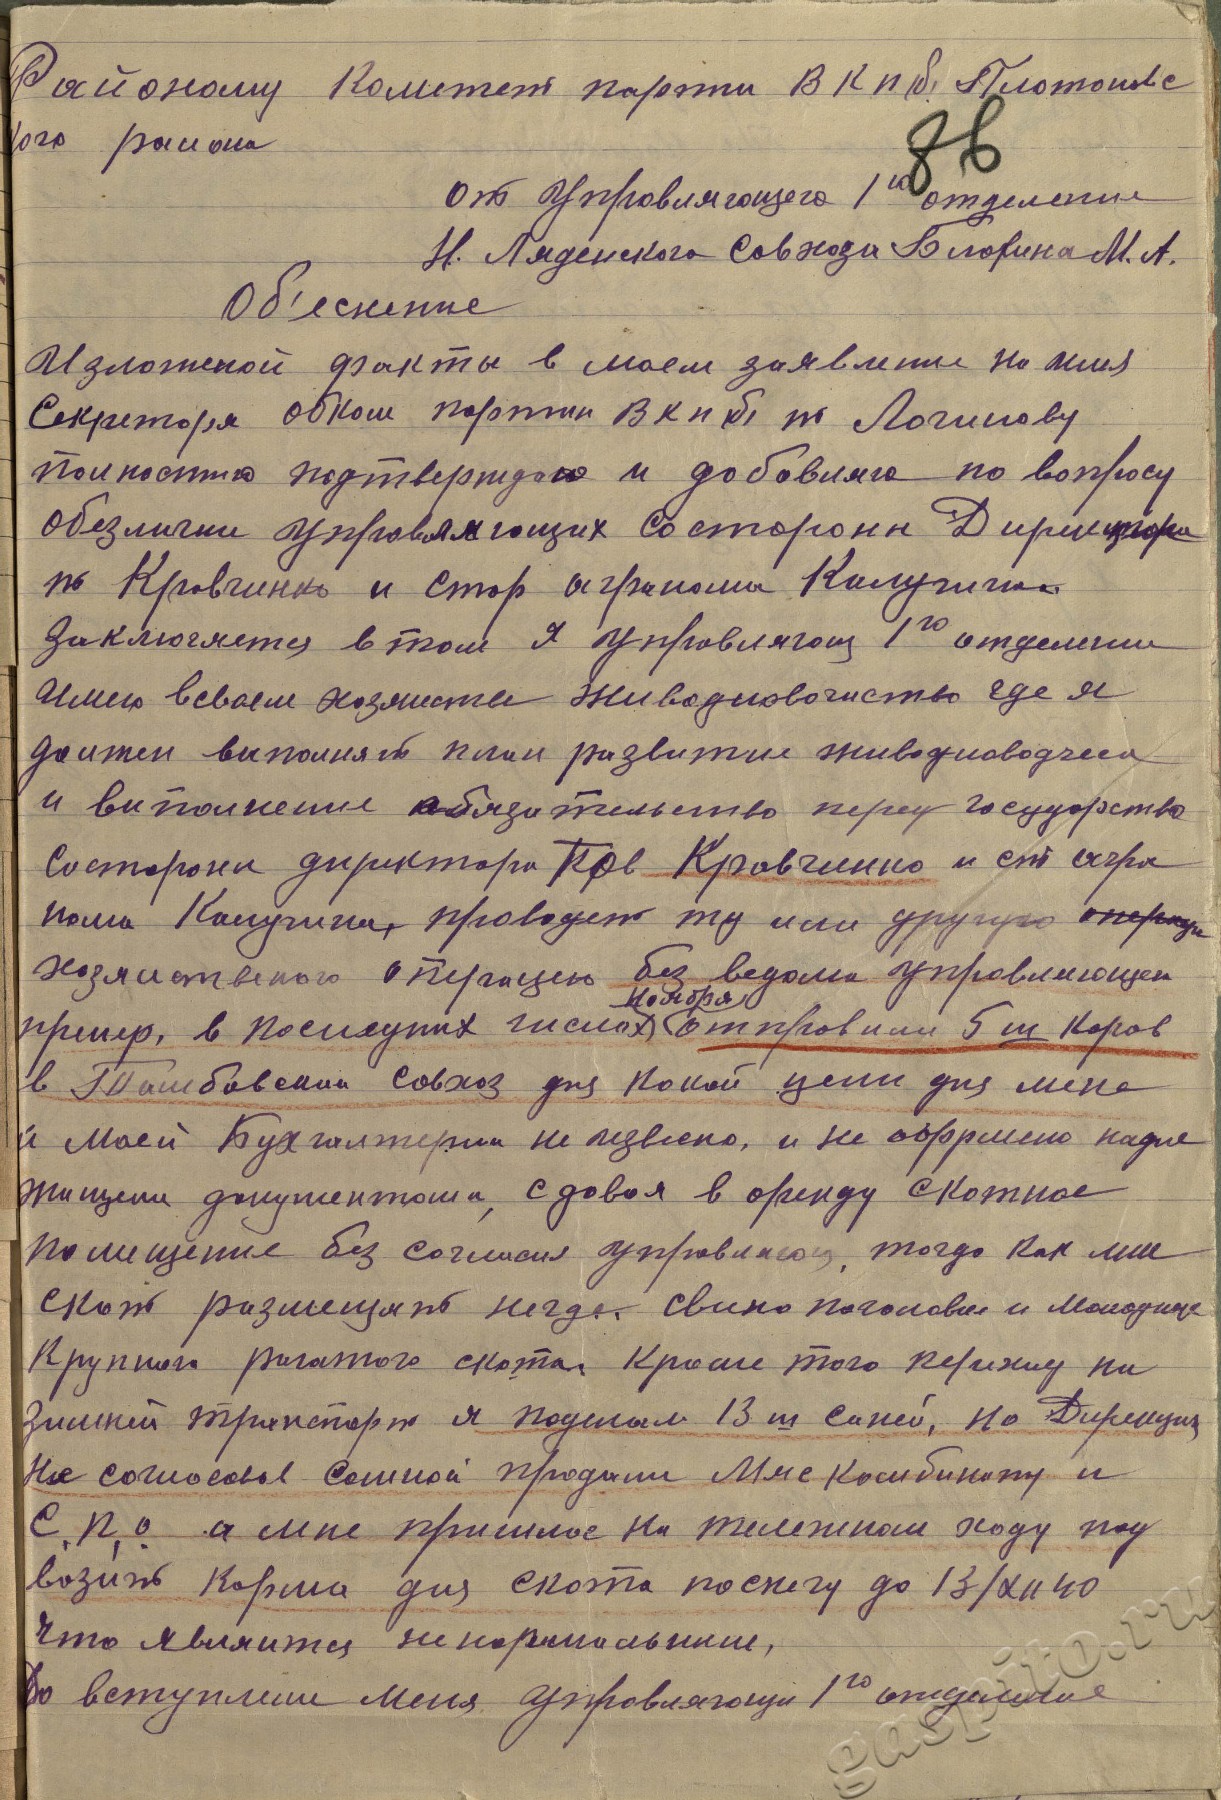 Районому Комитет партии ВКПб. Платоновс
кого района
86
от Управляющего 1го отделение
Н. Ляденского Совхоза Блохина М. А.
Об'еснение
Изложеной факты в моем заявление на имя
Секреторя обком партии ВКПб т Логинову
полностью подтверждаю и добовляю по вопросу
обезлички управляющих со стороны Директора
т Кровченко и стар агранома Калугина
заключяется в том я управляющ 1го отделении
имею всвоем хозяистве живодноводчество где я
должен выполнят план развитие живодноводчеса
и выполнение обязательство перед государство
состороны директора тов Кровченко и ст агра
нома Калугина, проводет ту или другую
хозяиственого операцею без ведома управляющеи
пример, в последних числах ноября отправили 5 ш Коров
в Тамбовскии совхоз для какой цели для мене
и моей Бухгалтерии не извесно, и не оформено надле
жищеми документами, сдовая в оренду скотное
помещение без согласия управляющ, тогда как мне
скот размещят негде. свино поголовие и молодняк
крупного рогатого скота. Кроме того перехиду на
зимней транспорт я поделал 13 ш саней, но Дирекция
не согласовов сомной продали Мясокомбинату и
С.П.О. а мне пришлос на тележном ходу под
возить корма для скота поснегу до 13/XII 40
что является ненормальным,
До вступлеие меня управляющи 1го отделение
gaspito.ru